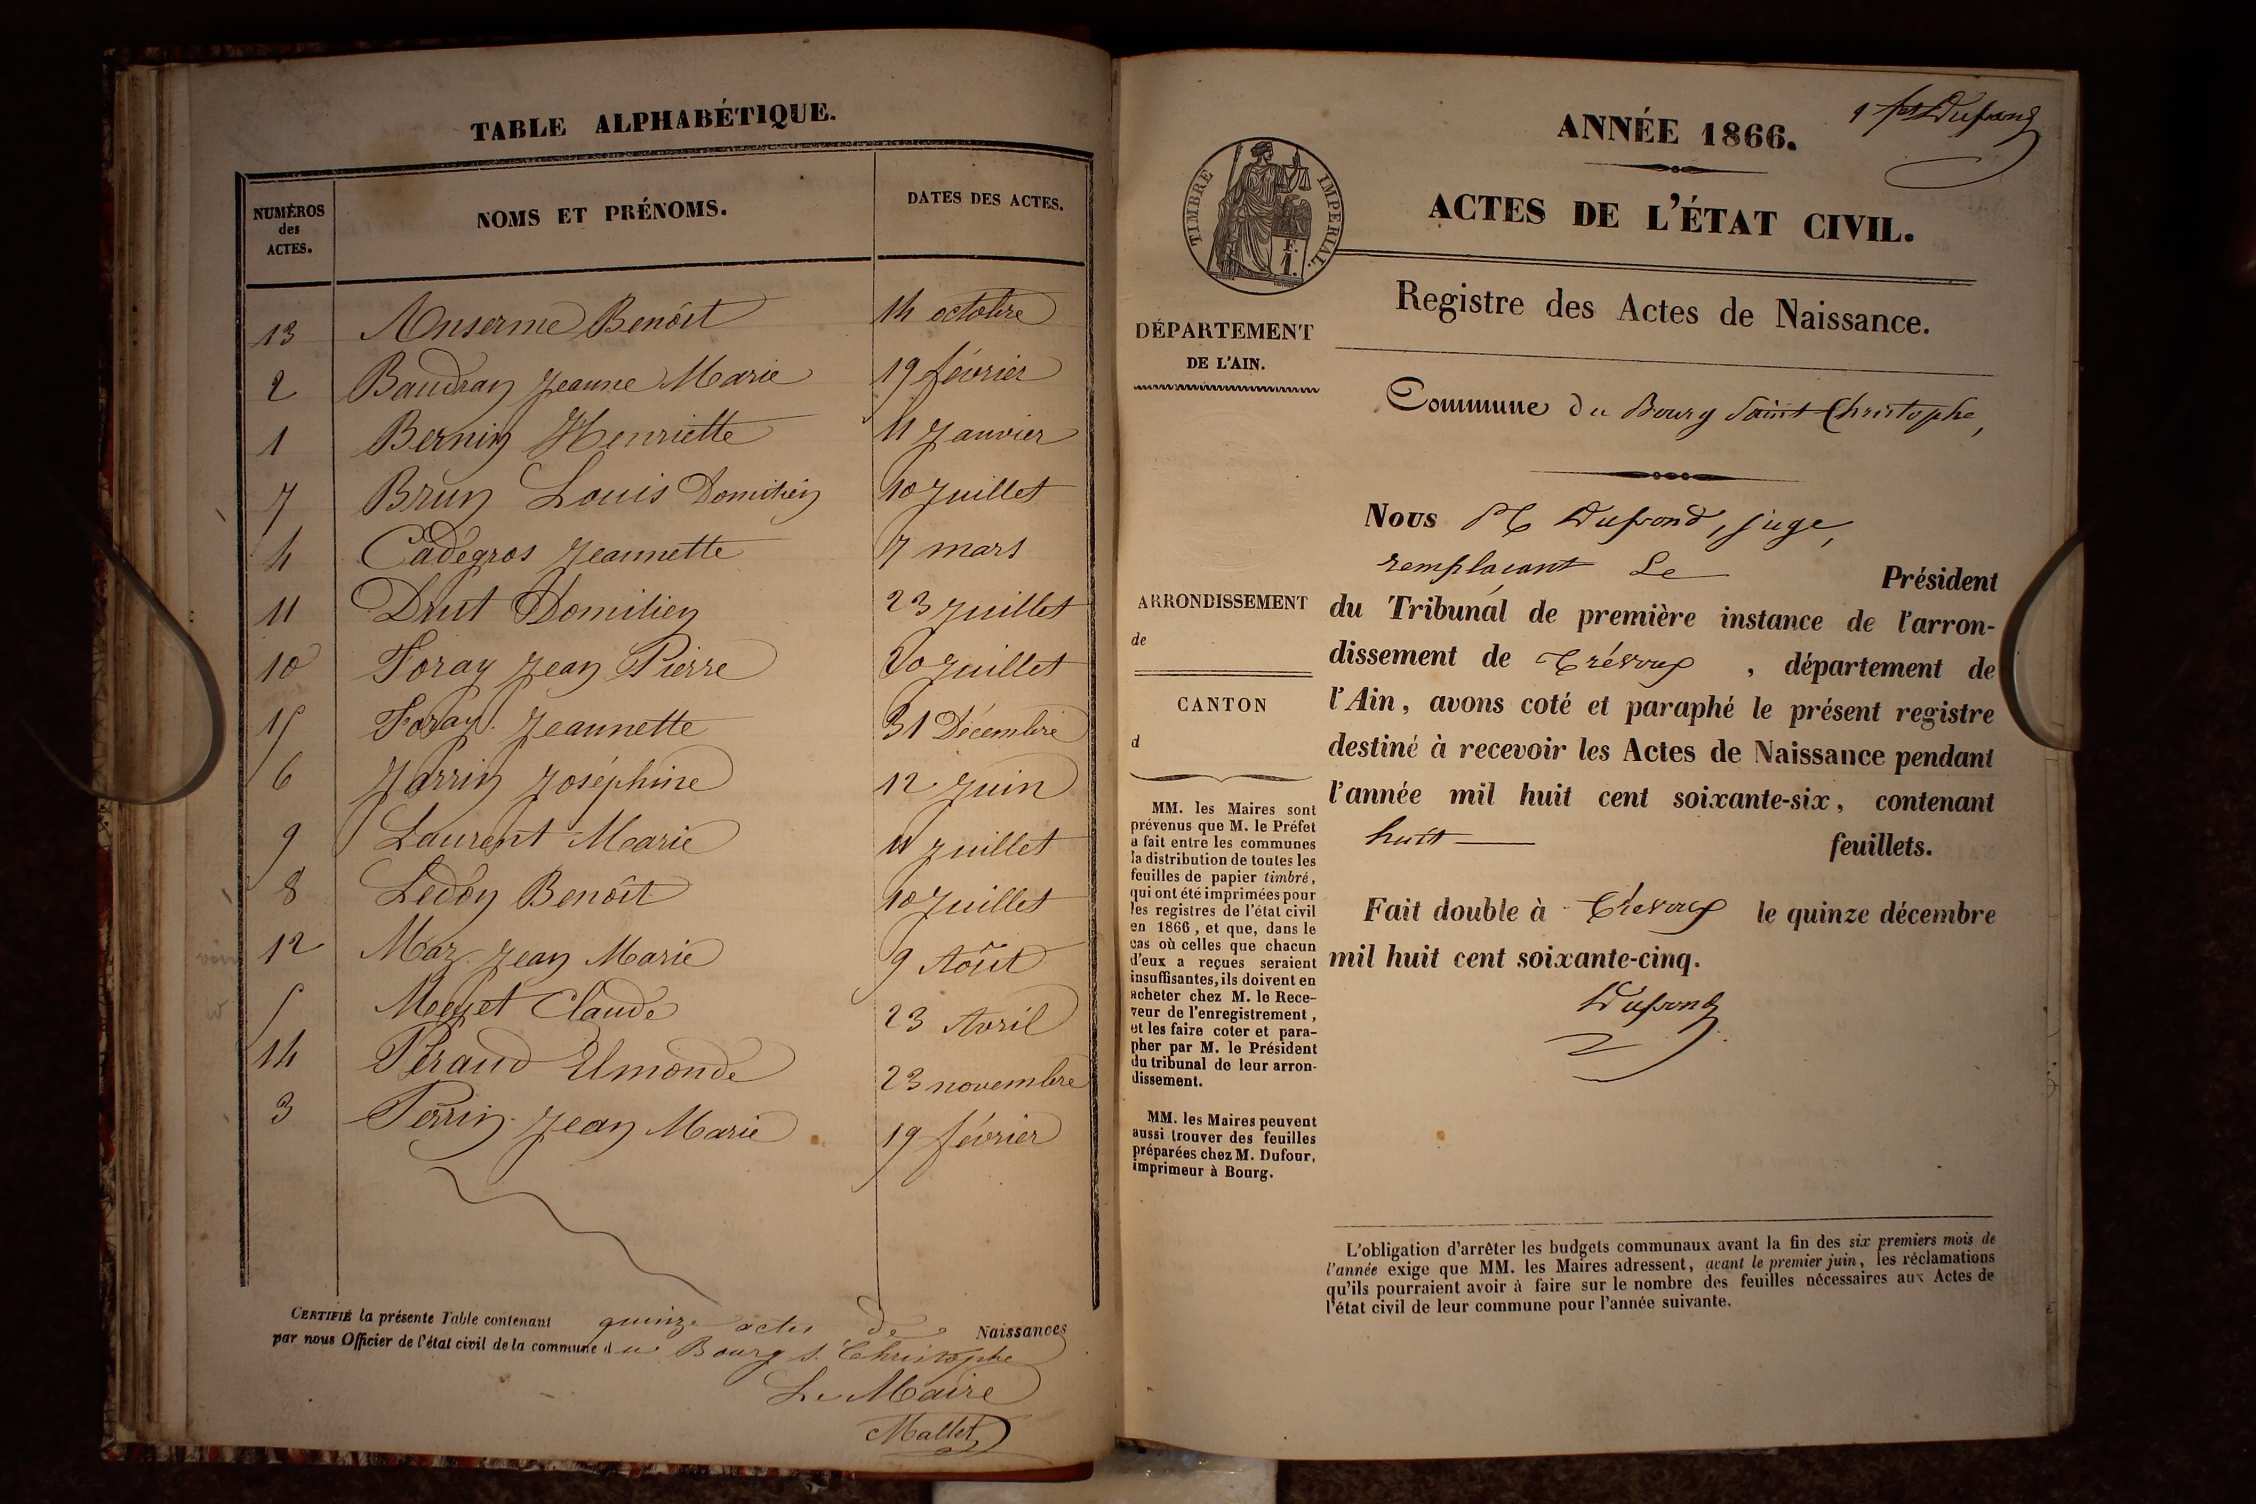 TABLE ALPHABÉTIQUE.
NUMÉROS
des
ACTES.
NOMS ET PRÉNOMS.
DATES DES ACTES.
13 Anserme Benoit 14 octobre
2 Baudran Jeanne Marie 19 février
1 Bernin Henriette 11 Janvier
7 Brun Louis Domitien 10 Juillet
4 Cadégros Jeannette 7 mars
11 Drut Domitien 23 Juillet
10 Foray Jean Pierre 20 Juillet
15 Foray Jeannette 31 Décembre
6 Jarrin Joséphine 12 Juin
9 Laurent Marie 11 Juillet
8 Ledon Benoît 10 Juillet
12 Maz Jean Marie 9 Août
5 Meyet Claude 23 Avril
14 Péraud Elmonde 23 novembre
3 Perrin Jean Marie 19 février
CERTIFIÉ la présente Table contenant quinze actes de Naissances
par nous Officier de l'état civil de la commune du Bourg St Christophe
Le Maire
Mallet
Dufrond
ANNÉE 1866.
ACTES DE L'ÉTAT CIVIL.
TIMBRE IMPERIAL.
Registre des Actes de Naissance.
DÉPARTEMENT
DE L'AIN.
Commune du Bourg Saint Christophe,
Nous Dufrond, juge,
remplacant Le Président
du Tribunal de première instance de l'arron-
dissement de Trévoux, département de
l'Ain, avons coté et paraphé le présent registre
destiné à recevoir les Actes de Naissance pendant
l'année mil huit cent soixante-six, contenant
huit feuillets.
Fait double à Trévoux le quinze décembre
mil huit cent soixante-cinq.
Dufrond
ARRONDISSEMENT
de
CANTON
d
MM. les Maires sont
prévenus que M. le Préfet
a fait entre les communes
la distribution de toutes les
feuilles de papier timbré,
qui ont été imprimées pour
les registres de l'état civil
en 1866, et que, dans le
cas où celles que chacun
d'eux a reçues seraient
insuffisantes, ils doivent en
acheter chez M. le Rece-
veur de l'enregistrement,
et les faire coter et para-
pher par M. le Président
du tribunal de leur arron-
dissement.
MM. les Maires peuvent
aussi trouver des feuilles
préparées chez M. Dufour,
imprimeur à Bourg.
L'obligation d'arrêter les budgets communaux avant la fin des six premiers mois de
l'année exige que MM. les Maires adressent, avant le premier juin, les réclamations
qu'ils pourraient avoir à faire sur le nombre des feuilles nécessaires aux Actes de
l'état civil de leur commune pour l'année suivante.